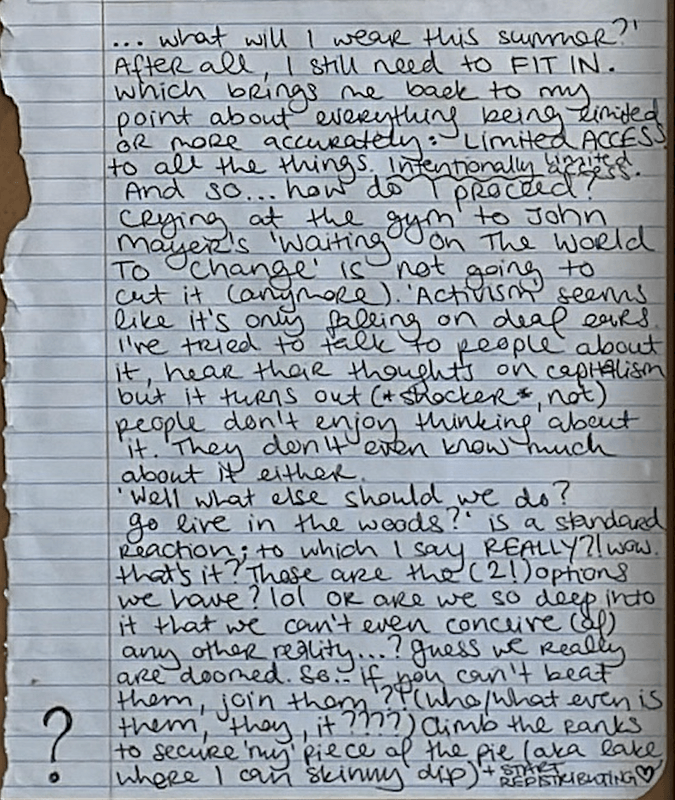 ... what will I wear this summer?'
After all, I still need to FIT IN.
which brings me back to my
point about everything being limited
OR more accurately: Limited ACCESS
to all the things. Intentionally limited access.
And so... how do I proceed?
Crying at the gym to John
Mayer's 'Waiting On The World
To Change' is not going to
cut it (anymore). 'Activism' seems
like it's only falling on deaf ears.
I've tried to talk to people about
it, hear their thoughts on capitalism
but it turns out (*shocker*, not)
people don't enjoy thinking about
it. They don't even know much
about it either.
'Well what else should we do?
go live in the woods?' is a standard
Reaction; to which I say REALLY?! wow.
that's it? These are the (2!) options
we have? lol OR are we so deep into
it that we can't even concieve (of)
any other reality...? guess we really
are doomed. So.. if you can't beat
them, join them?! (who/what even is
them, they, it????) Climb the ranks
to secure 'my' piece of the pie (aka lake
where I can skinny dip) + START REDISTRIBUTING ♡
?